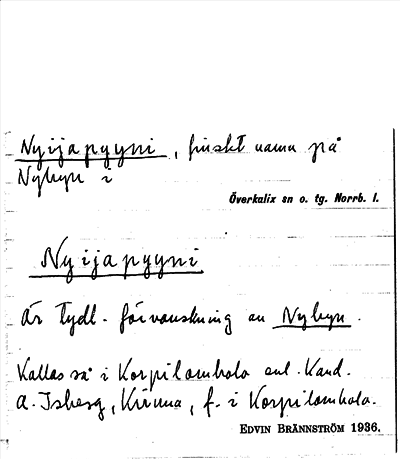 Nyijapyyni, finskt namn på
Nybyn i
Överkalix sn o. tg. Norrb. l.
Nyijapyyni
är tydl. förvanskning av Nybyn.
Kallas så i Korpilombolo enl. Kand.
A. Isberg, Kiruna, f. i Korpilombolo.
EDVIN BRÄNNSTRÖM 1936.